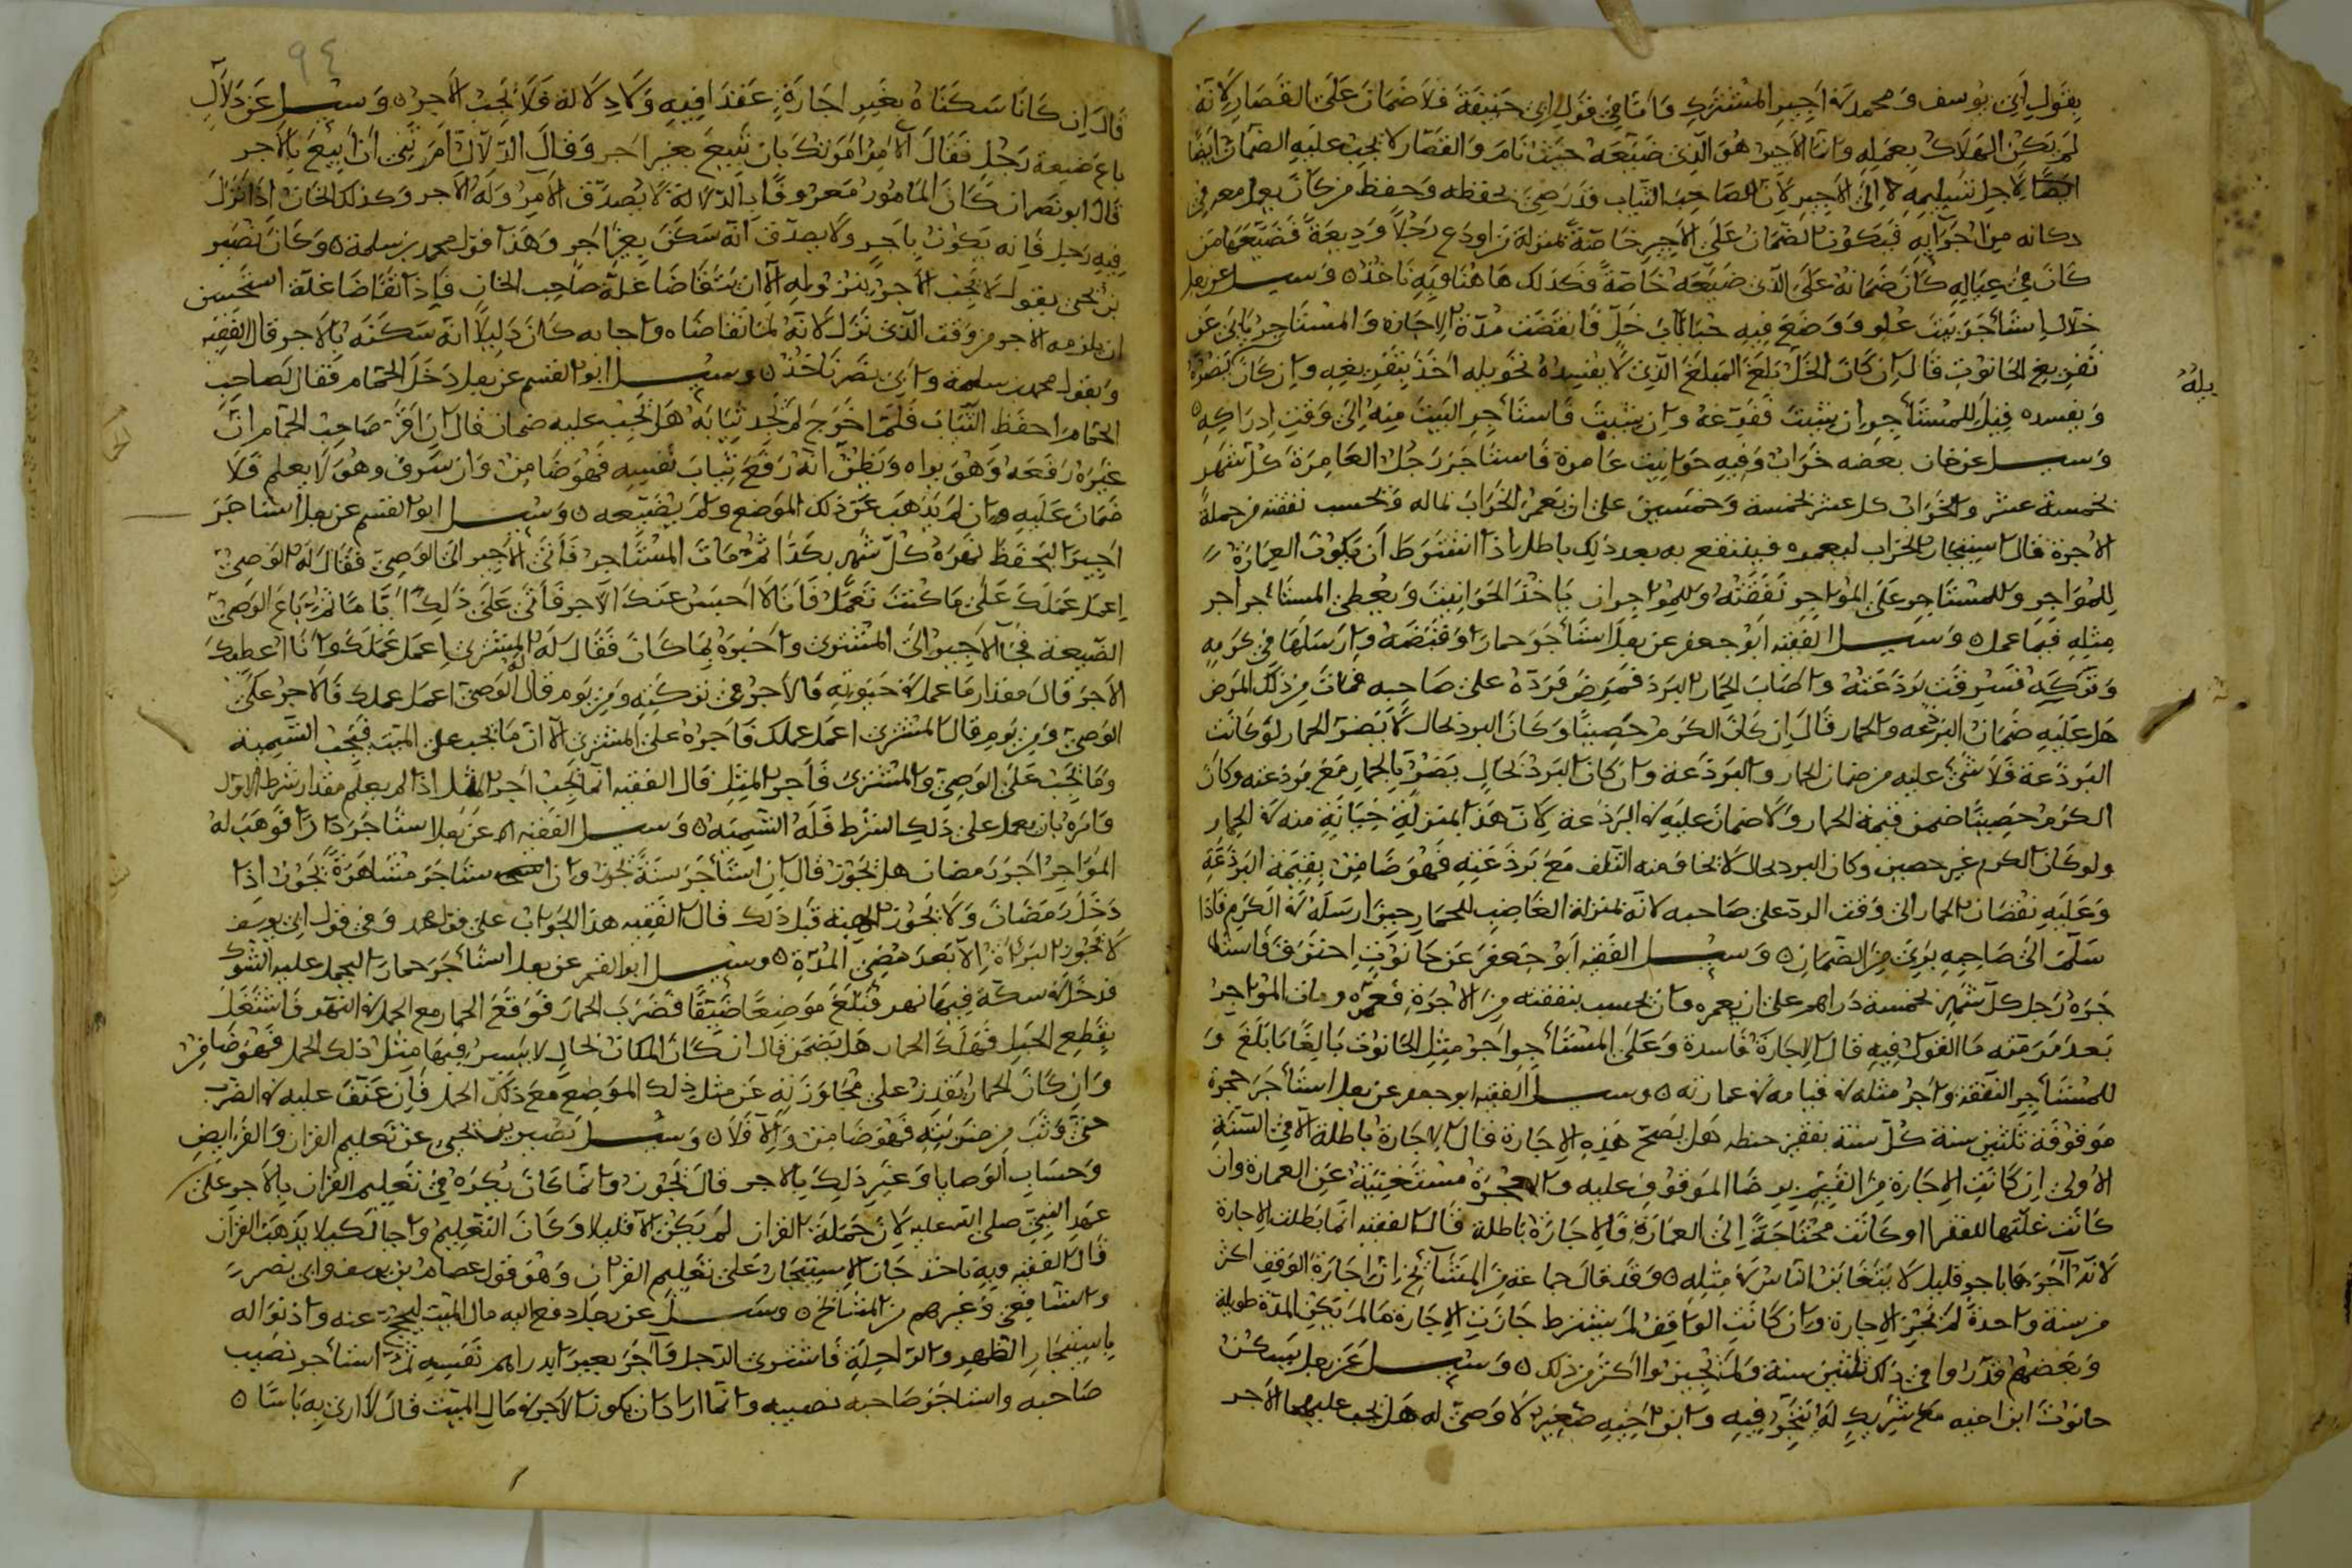 بقول ابي يوسف ومحمد في اجير المشترك واما في قول ابي حنيفة فلا ضمان على القصار لانه
لم يكن الهلاك بعمله وانما الاجير هو الذي ضيعه حيث نام والقصار لا يجب عليه الضمان ايضا
لاجل تسليمه الى الاجير لان الصاحب الثياب قد رضي بحفظه وحفظ من كان يعمل معه في
دكانه من اجرايه فيكون الضمان على الاجير خاصة بمنزلة من اودع رجلا وديعة فضيعها من
كان في عياله كان ضمانه على الذي ضيعه خاصة فكذلك هاهنا وبه ناخذ وسيل عن رجل
خلال استأجر بيت علو ووضع فيه حبابا خل فانقضت مدة الاجارة والمستاجر يابى عن
تفريغ الحانوت قال ان كان الخل بلغ المبلغ الذي لا يفسده تحويله اخذ بتفريغه وان كان يضره
ويفسده قيل للمستأجر ان شيت ففرغه وان شيت فاستأجر البيت منه الى وقت ادراكه
وسيل عن خان بعضه خراب وفيه حوانيت عامرة فاستاجر رجل العامرة كل شهر
بخمسة عشر والخراب كل عشر بخمسة وخمسين على ان يعمر الخراب بماله ويحسب نفقته من جملة
الاجرة قال استيجار الخراب ليعمره فينتفع به بعد ذلك باطل اذا اشترط ان يكون العمارة
للمواجر وللمستاجر على المواجر نفقته وللمواجر ان ياخذ الحوانيت ويعطي المستأجر اجر
مثله فيما عمل وسيل الفقيه ابو جعفر عن رجل استأجر حمارا وقبضه وارسلها في كرمه
وتركه فسرقت بردعته واصاب الحمار البرد فمرض فرده على صاحبه فمات من ذلك المرض
هل عليه ضمان البردعه والحمار قال ان كان الكرم حصينا وكان البرد بحال لا يضر الحمار لو كانت
البردعة فلا شئ عليه من ضمان الحمار والبردعة وان كان البرد بحال يضر بالحمار مع بردعته وكان
الكرم حصينا ضمن قيمة الحمار ولا ضمان عليه في البردعة لان هذا بمنزلة خيانة منه في الحمار
ولو كان الكرم غير حصين وكان البرد بحال لا يخاف منه التلف مع بردعته فهو ضامن بقيمة البردعة
وعليه نقصان الحمار الى وقت الرد على صاحبه لانه بمنزلة الغاصب للحمار حين ارسله في الكرم فاذا
سلم الى صاحبه برئ من الضمان وسيل الفقيه ابو جعفر عن حانوت احترق فاستا
جره رجل كل شهر بخمسة دراهم على ان يعمره وان يحسب بنفقته من الاجرة فعمره ومات المواجر
بعد مرمته ما القول فيه قال الاجارة فاسدة وعلى المستأجر اجر مثل الحانوت بالغا ما بلغ و
للمستأجر النفقة واجر مثله في قيامه في عمارته وسيل الفقيه ابو جعفر عن رجل استأجر حجرة
موقوفة ثلثين سنة كل سنة بقفيز حنطه هل يصح هذه الاجارة قال الاجارة باطلة الا في السنة
الاولى ان كانت الاجارة من القيم برضا الموقوف عليه والحجرة مستغنية عن العمارة وان
كانت غلتها للفقرا او كانت محتاجة الى العمارة فالاجارة باطلة قال الفقيه انما بطلت الاجارة
لانه آجرها باجر قليل لا يتغابن الناس في مثله وقد قال جماعة من المشائخ ان اجارة الوقف اكثر
من سنة واحدة لم تجز الاجارة وان كانت الواقف لم يشترط جازت الاجارة ما لم يكن المدة طويلة
وبعضهم قدروا في ذلك ثلثين سنة ولم يجيزوا اكثر من ذلك وسيل عن رجل يسكن
حانوت ابن اخيه مع شريك له يتجر فيه وابن اخيه صغير لا وصي له هل يجب عليهما الاجر
يله
٩٤
قال ان كانا سكناه بغير اجارة عقدا فيه ولا دلالة فلا يجب الاجر وسيل عن دلال
باع ضيعة رجل فقال الآمر امرتك بان تبيع بغير اجر وقال الدلال امرتني ان ابيع بالاجر
قال ابو نصر ان كان المامور معروفا بالدلالة لا يصدق الآمر وله الاجر وكذلك الخان اذا نزل
فيه رجل فانه يكون باجر ولا يصدق انه سكن بغير اجر وهذا قول محمد بن سلمة وكان نصير
بن يحيى يقول لا يجب الاجر بنزوله الا ان يتقاضا غلة صاحب الخان فاذا تقاضا غلة استحسن
ان يلزمه الاجر من وقت الذي نزل لانه لما تقاضاه واجابه كان دليلا انه سكنه بالاجر قال الفقيه
وبقول محمد بن سلمة وابي نصر ناخذ وسيل ابو القسم عن رجل دخل الحمام فقال لصاحب
الحمام احفظ الثياب فلما خرج لم يجد ثيابه هل يجب عليه ضمان قال ان اقر صاحب الحمام ان
غيره رفعه وهو يراه ويظن انه رفع ثياب نفسه فهو ضامن وان سرق وهو لا يعلم فلا
ضمان عليه وان لم يذهب عن ذلك الموضع ولم يضيعه وسيل ابو القسم عن رجل استاجر
اجيرا ليحفظ نهره كل شهر بكذا ثم مات المستاجر فأتى الاجير الى الوصي فقال له الوصي
اعمل عملك على ما كنت تعمل فانا لا احبس عنك الاجر فأتى على ذلك اياما ثم باع الوصي
الضيعة فجا الاجير الى المشتري واخبره بما كان فقال له المشتري اعمل عملك وانا اعطيك
الاجر قال مقدار ما عمل في حيوته فالاجر في تركته ومن يوم قال له الوصي اعمل عملك فالاجر على
الوصي ومن يوم قال المشتري اعمل عملك فاجره على المشتري الا ان ما يجب على الميت فيجب التسمية
وما يجب على الوصي والمشتري فأجر المثل قال الفقيه انما يجب اجر المثل اذا لم يعلم مقدار شرط الاول
وامره بان يعمل على ذلك الشرط فله التسمية وسيل الفقيه عن رجل استأجر دارا فوهب له
المواجر اجر رمضان هل يجوز قال ان استأجر سنة يجوز وان استاجر مشاهرة يجوز اذا
دخل رمضان ولا يجوز الهبة قبل ذلك قال الفقيه هذا الجواب على قول محمد وفي قول ابي يوسف
لا تجوز البرائة الا بعد مضي المدة وسيل ابو القسم عن رجل استأجر حمارا ليحمل عليه الشوك
فدخل في سكة فيها نهر فبلغ موضعا ضيقا فضرب الحمار فوقع الحمار مع الحمل في النهر فاشتغل
بقطع الحبل فهلك الحمار هل يضمن قال ان كان المكان بحال لا يسير فيها مثل ذلك الحمل فهو ضامن
وان كان الحمار يقدر على مجاوزته عن مثل ذلك الموضع مع ذلك الحمل فان عنف عليه في الضرب
حتى وثب من ضربته فهو ضامن والا فلا وسيل نصير بن يحيى عن تعليم القران والفرايض
وحساب الوصايا وغير ذلك بالاجر قال يجوز وانما كان يكره في تعليم القران بالاجر على
عهد النبي صلى الله عليه لان حملة القران لم يكن الا قليلا وكان التعليم واجبا لكيلا يذهب القران
قال الفقيه وبه ناخذ جاز الاستيجار على تعليم القران وهو قول عصام بن يوسف وابي نصر
والشافعي وغيرهم من المشائخ وسيل عن رجل دفع اليه مال الميت ليحج عنه واذنوا له
باستيجار الظهر والراحلة فاشترى الرجل وآجر بعيرا بدراهم نفسه ثم استأجر نصيب
صاحبه واستاجر صاحبه نصيبه وانما اراد ان يكون الاجر في مال الميت قال لا ارى به باسا